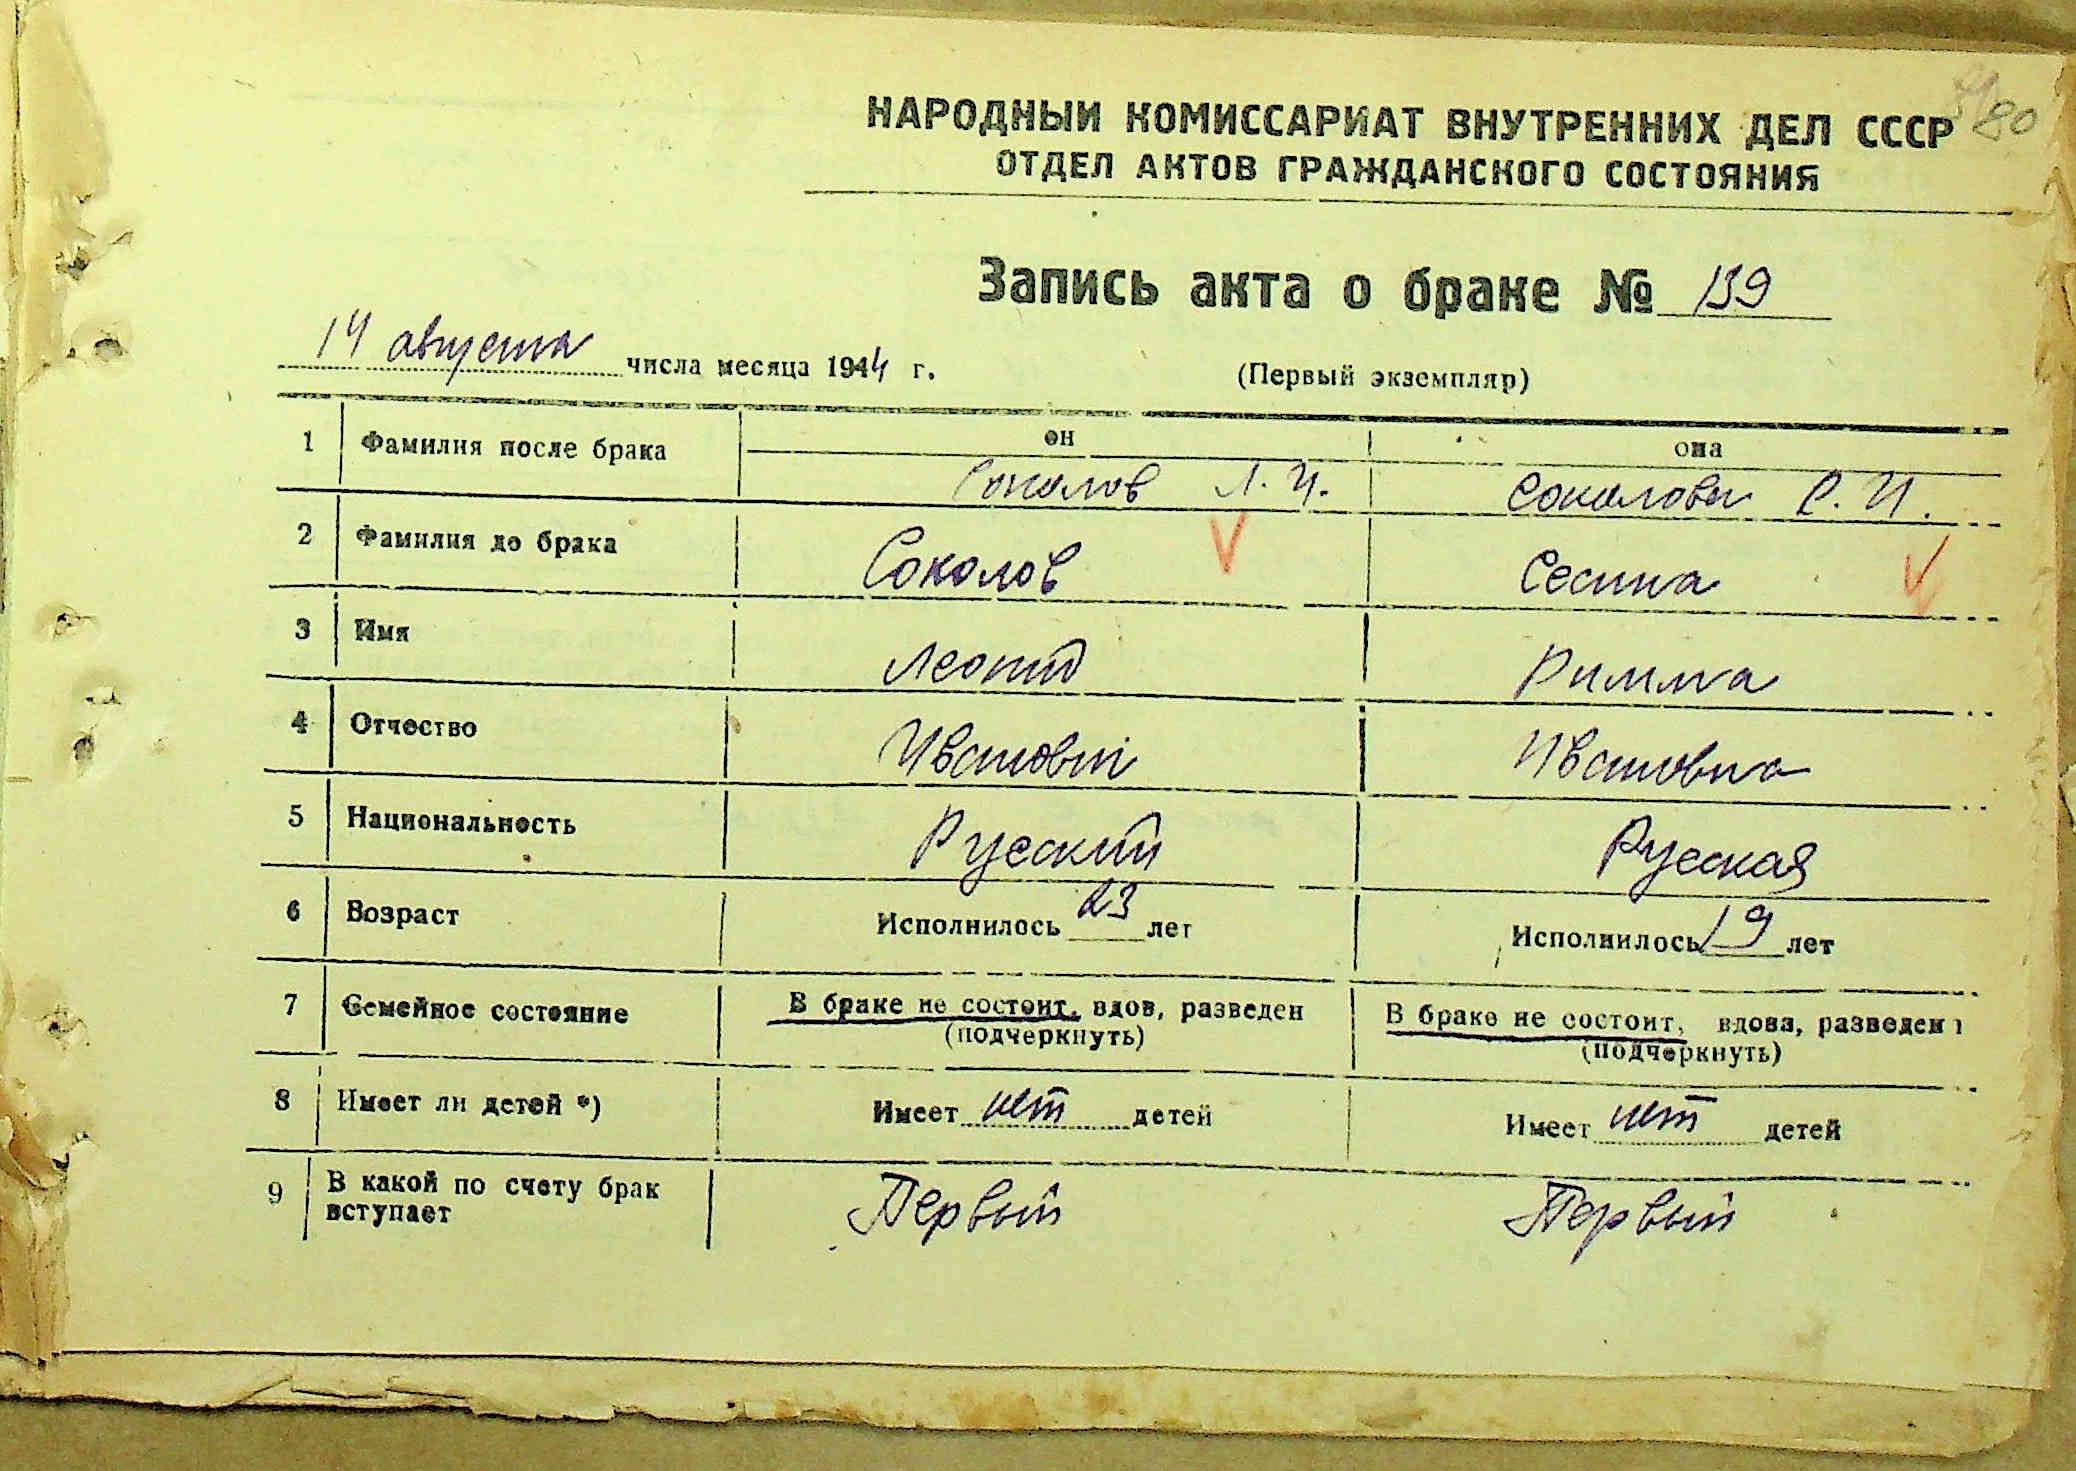 80
НАРОДНЫЙ КОМИССАРИАТ ВНУТРЕННИХ ДЕЛ СССР
ОТДЕЛ АКТОВ ГРАЖДАНСКОГО СОСТОЯНИЯ
Запись акта о браке № 139
14 августа числа месяца 1944 г. (Первый экземпляр)
1 Фамилия после брака он она
Соколов Л. И. Соколова Р. И.
2 Фамилия до брака Соколов Сесина
3 Имя Леонид Римма
4 Отчество Иванович Ивановна
5 Национальность Русский Русская
6 Возраст Исполнилось 23 лет Исполнилось 19 лет
7 Семейное состояние В браке не состоит, вдов, разведен В браке не состоит, вдова, разведен
(подчеркнуть) (подчеркнуть)
8 Имеет ли детей *) Имеет нет детей Имеет нет детей
9 В какой по счету брак вступает Первый Первый